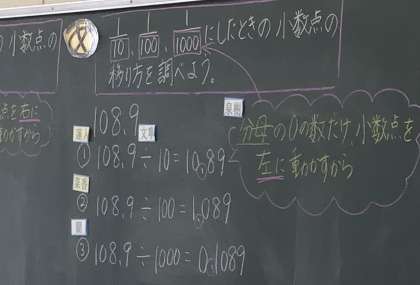 の小数点の
1/10、1/100、1/1000にしたときの小数点の
移り方を調べよう。
点を右に
動かすから
108.9
① 108.9÷10=10.89
② 108.9÷100=1.089
③ 108.9÷1000=0.1089
分母の0の数だけ、小数点を
左に動かすから